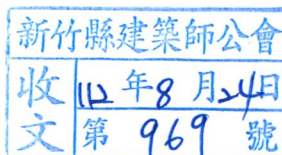 新竹縣建築師公會
收文
112年8月24日
第969號